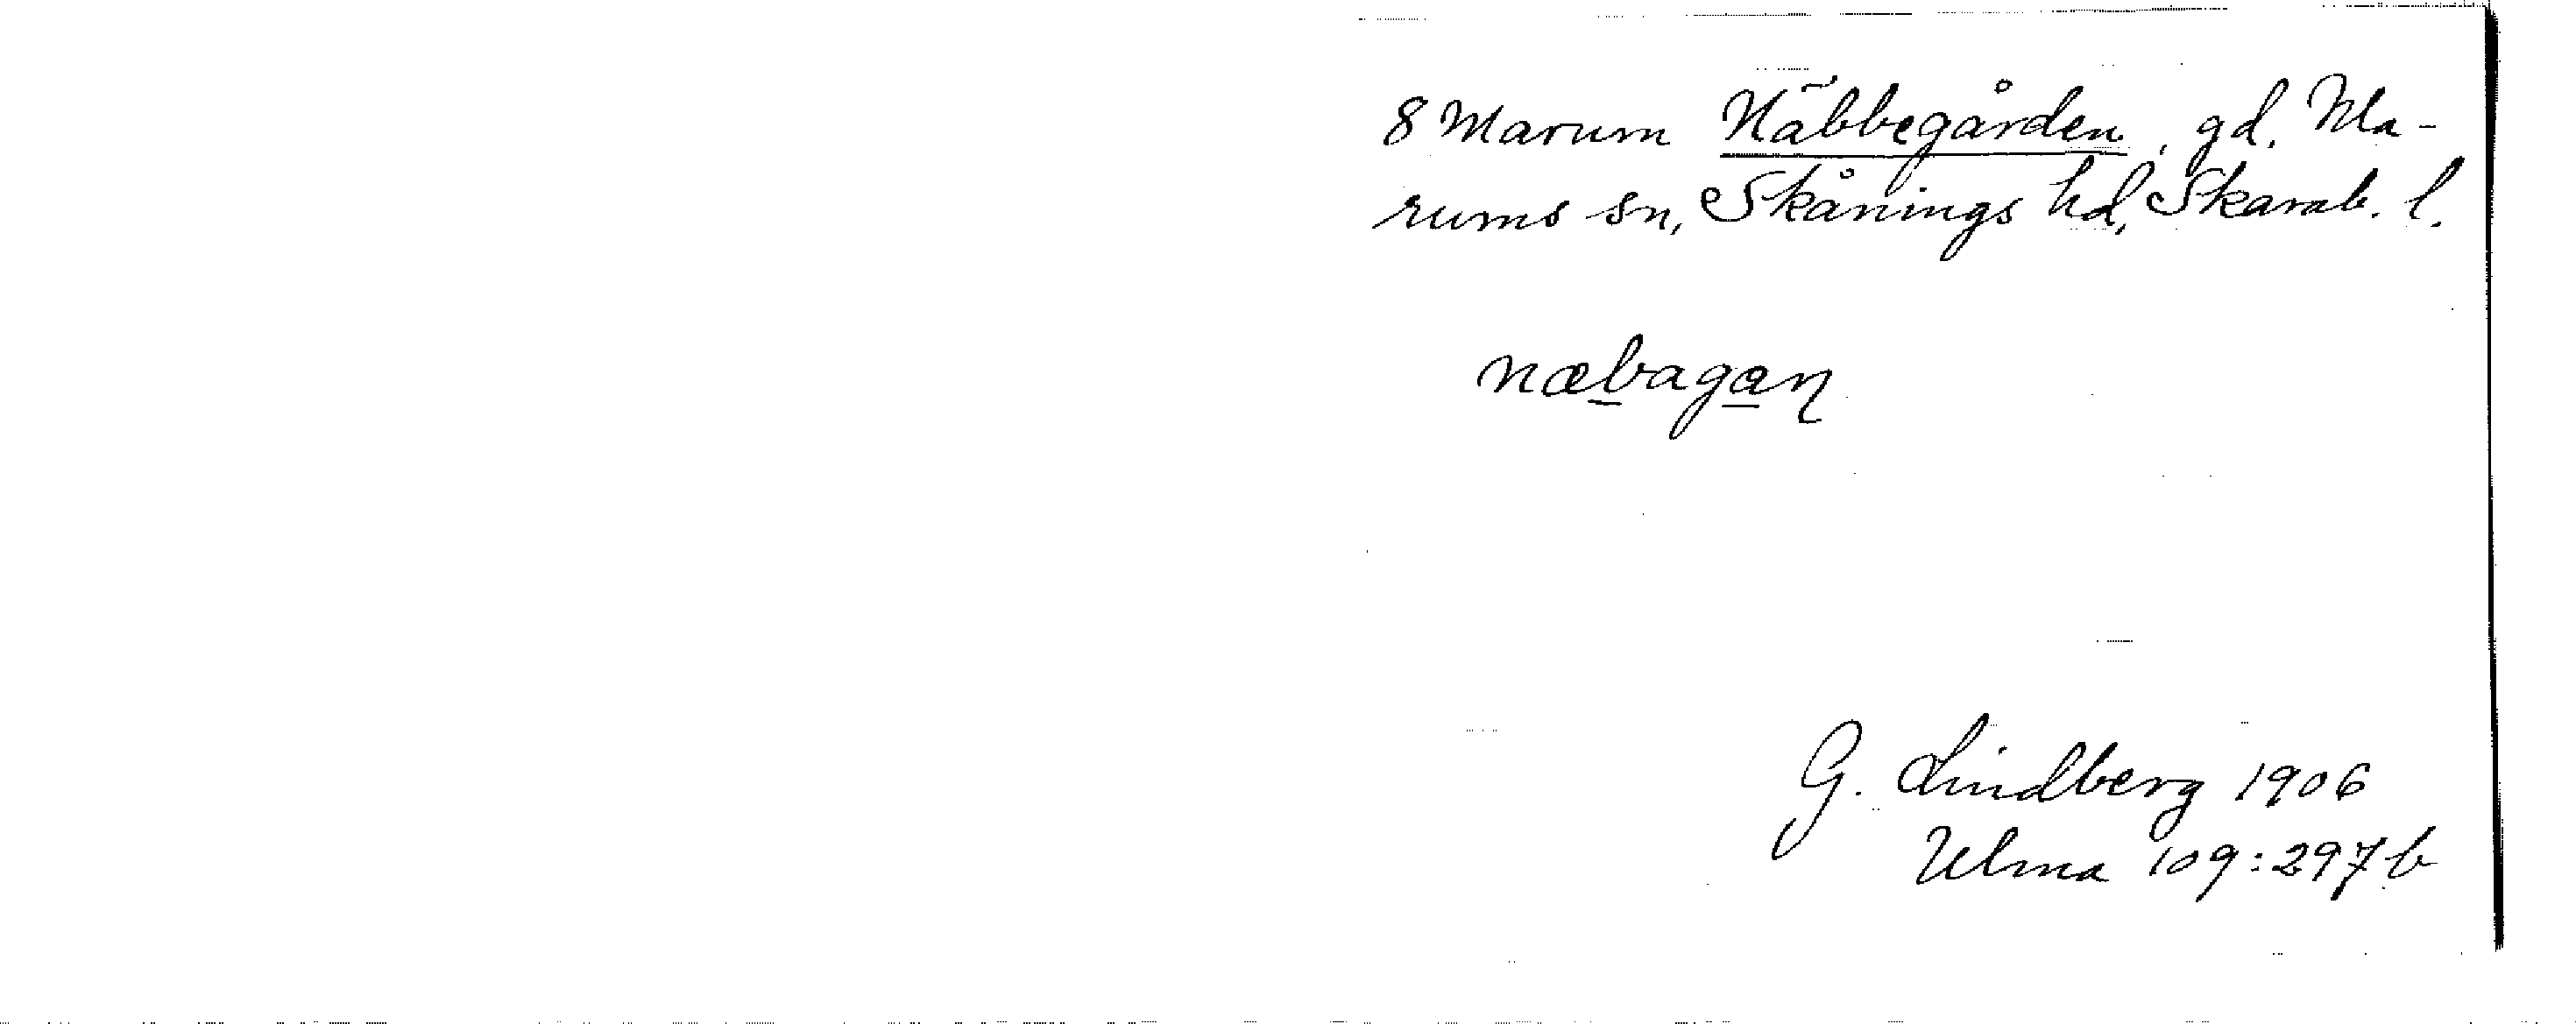 8 Marum Näbbegården, gd. Ma-
rums sn, Skånings hd, Skarab. l.
næbagaɳ
G. Lindberg 1906
Ulma 109:297 b